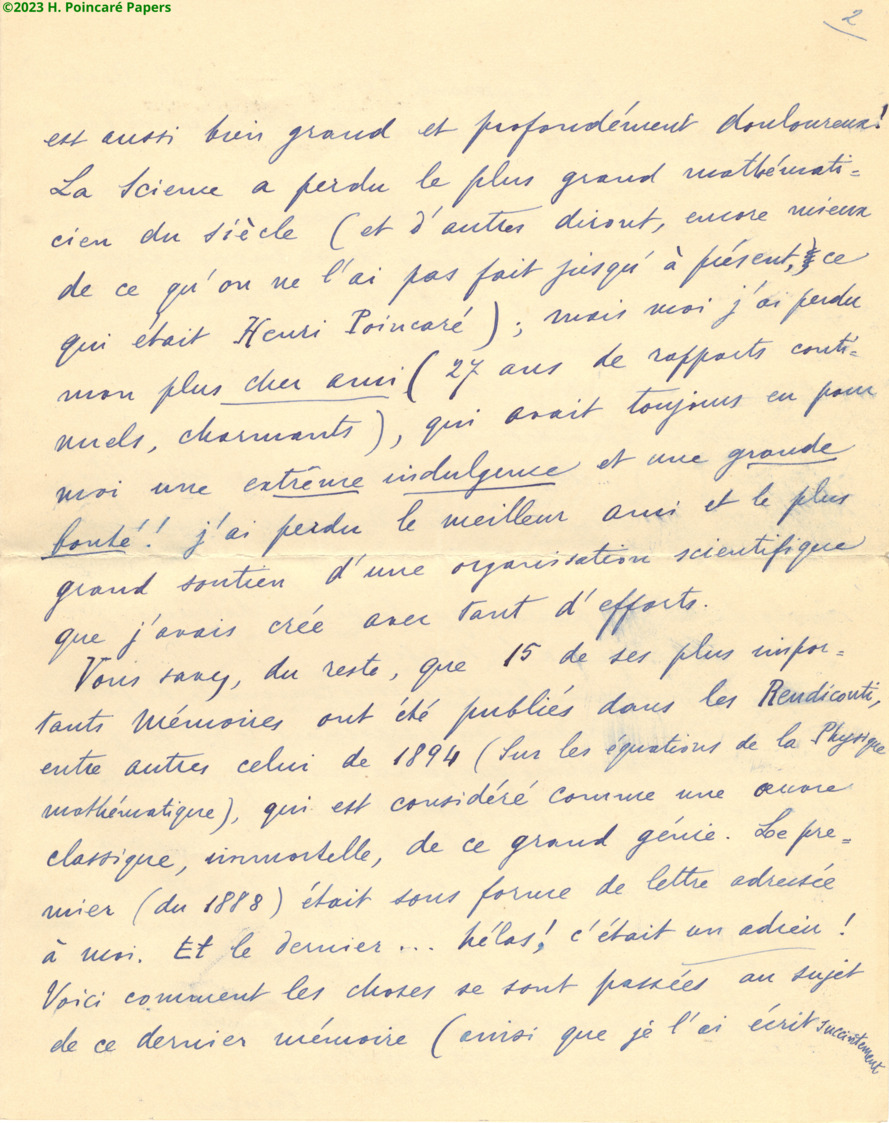 ©2023 H. Poincaré Papers
2
est aussi bien grand et profondément douloureux!
La Science a perdu le plus grand mathémati=
cien du siècle (et d'autres diront, encore mieux
de ce qu'on ne l'ai pas fait jusqu'à présent, ce
qui était Henri Poincaré); mais moi j'ai perdu
mon plus cher ami (27 ans de rapports conti=
nuels, charmants), qui avait toujours eu pour
moi une extrême indulgence et une grande
bonté! j'ai perdu le meilleur ami et le plus
grand soutien d'une organisation scientifique
que j'avais créé avec tant d'efforts.
Vous savez, du reste, que 15 de ses plus impor=
tants Mémoires ont été publiés dans les Rendiconti,
entre autres celui de 1894 (Sur les équations de la Physique
mathématique), qui est considéré comme une œuvre
classique, immortelle, de ce grand génie. Le pre=
mier (du 1888) était sous forme de lettre adressée
à moi. Et le dernier ... hélas! c'était un adieu!
Voici comment les choses se sont passées au sujet
de ce dernier mémoire (ainsi que je l'ai écrit succintement